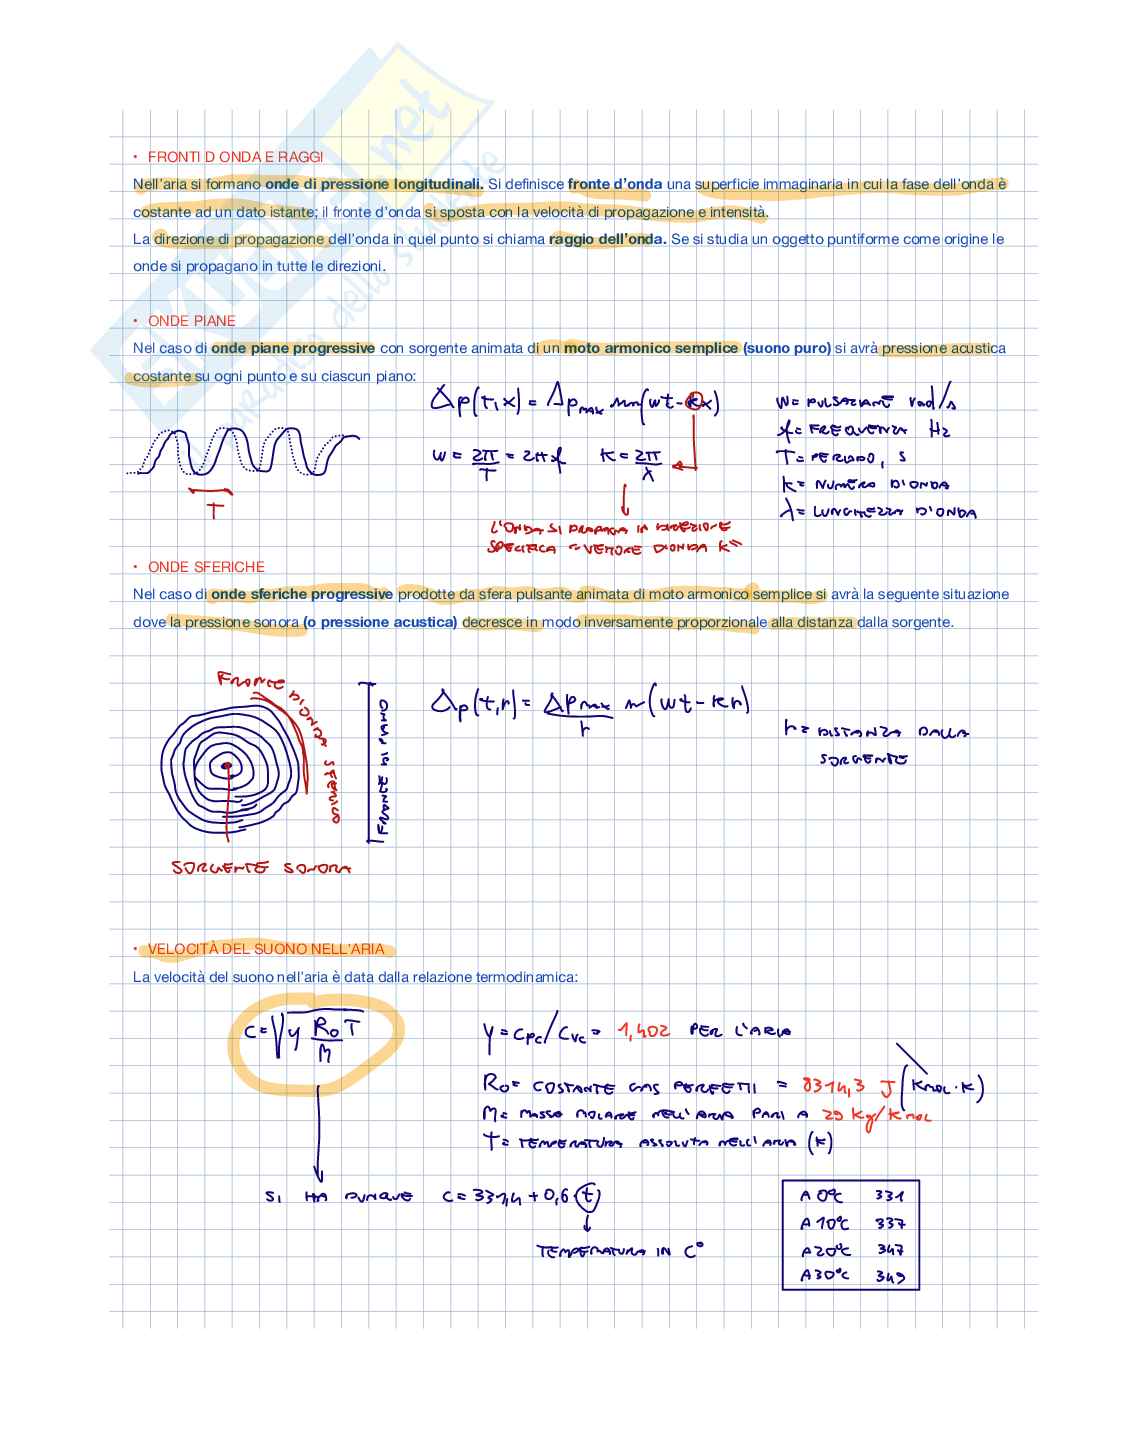 • FRONTI D ONDA E RAGGI
Nell'aria si formano onde di pressione longitudinali. Si definisce fronte d'onda una superficie immaginaria in cui la fase dell'onda è
costante ad un dato istante; il fronte d'onda si sposta con la velocità di propagazione e intensità.
La direzione di propagazione dell'onda in quel punto si chiama raggio dell'onda. Se si studia un oggetto puntiforme come origine le
onde si propagano in tutte le direzioni.
• ONDE PIANE
Nel caso di onde piane progressive con sorgente animata di un moto armonico semplice (suono puro) si avrà pressione acustica
costante su ogni punto e su ciascun piano:
Δp(t,x) = Δp MAX sen(wt-kx)
w = 2π/T = 2πf K = 2π/λ
T
L'ONDA SI PROPAGA IN DIREZIONE
SPECIFICA "VETTORE D'ONDA K"
W= PULSAZIONE rad/s
f= FREQUENZA Hz
T= PERIODO, S
K= NUMERO D'ONDA
λ= LUNGHEZZA D'ONDA
• ONDE SFERICHE
Nel caso di onde sferiche progressive prodotte da sfera pulsante animata di moto armonico semplice si avrà la seguente situazione
dove la pressione sonora (o pressione acustica) decresce in modo inversamente proporzionale alla distanza dalla sorgente.
FRONTE D'ONDA SFERICO
FRONTE PIANO
SORGENTE SONORA
Δp(t,r) = Δp max/r sen(wt-kr)
r= DISTANZA DALLA
SORGENTE
• VELOCITÀ DEL SUONO NELL'ARIA
La velocità del suono nell'aria è data dalla relazione termodinamica:
C=√γ R0 T/M
γ = Cpc/Cvc = 1,402 PER L'ARIA
R0= COSTANTE GAS PERFETTI = 8314,3 J/(Kmol·K)
M= MASSA MOLARE NELL'ARIA PARI A 29 Kg/Kmol
T= TEMPERATURA ASSOLUTA NELL'ARIA (K)
SI HA DUNQUE C= 331,4 + 0,6 (t)
TEMPERATURA IN C°
A 0°C 331
A 10°C 337
A 20°C 347
A 30°C 349